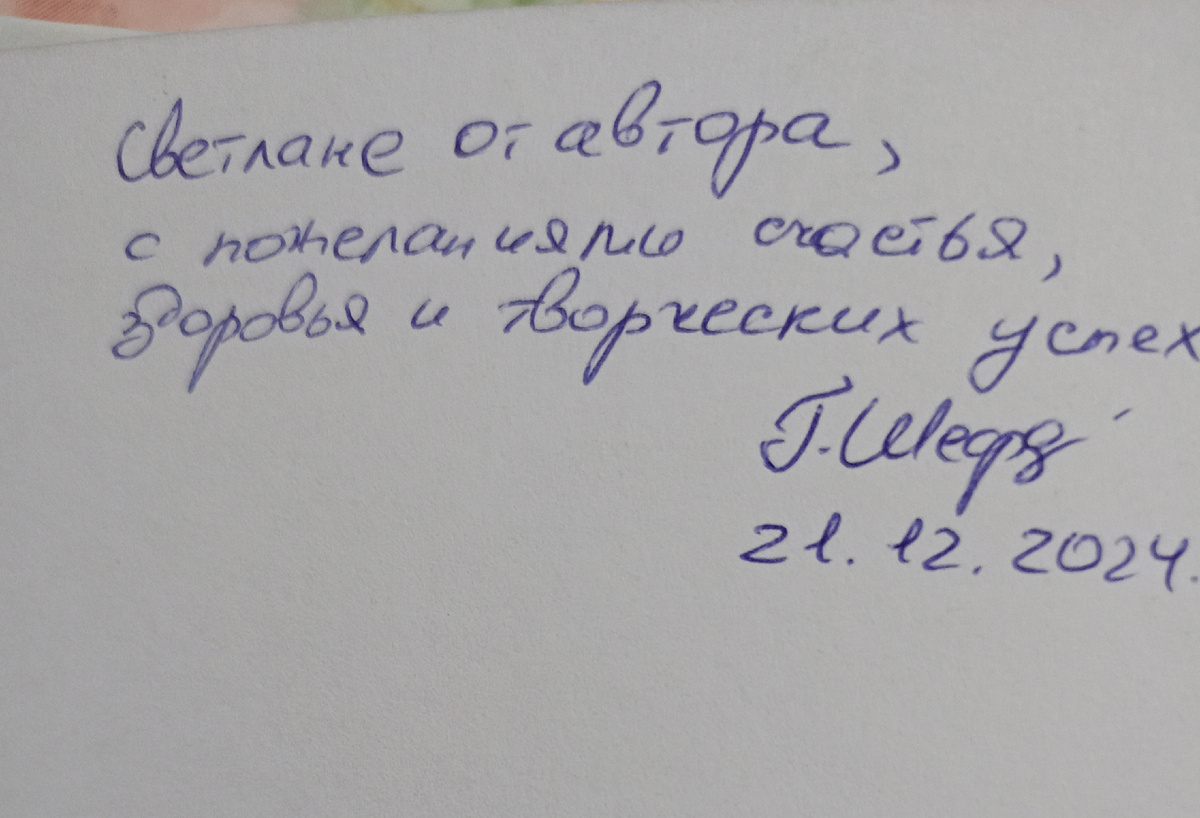 Светлане от автора,
с пожеланиями счастья,
здоровья и творческих успех
Г. Шефф
21.12.2024.